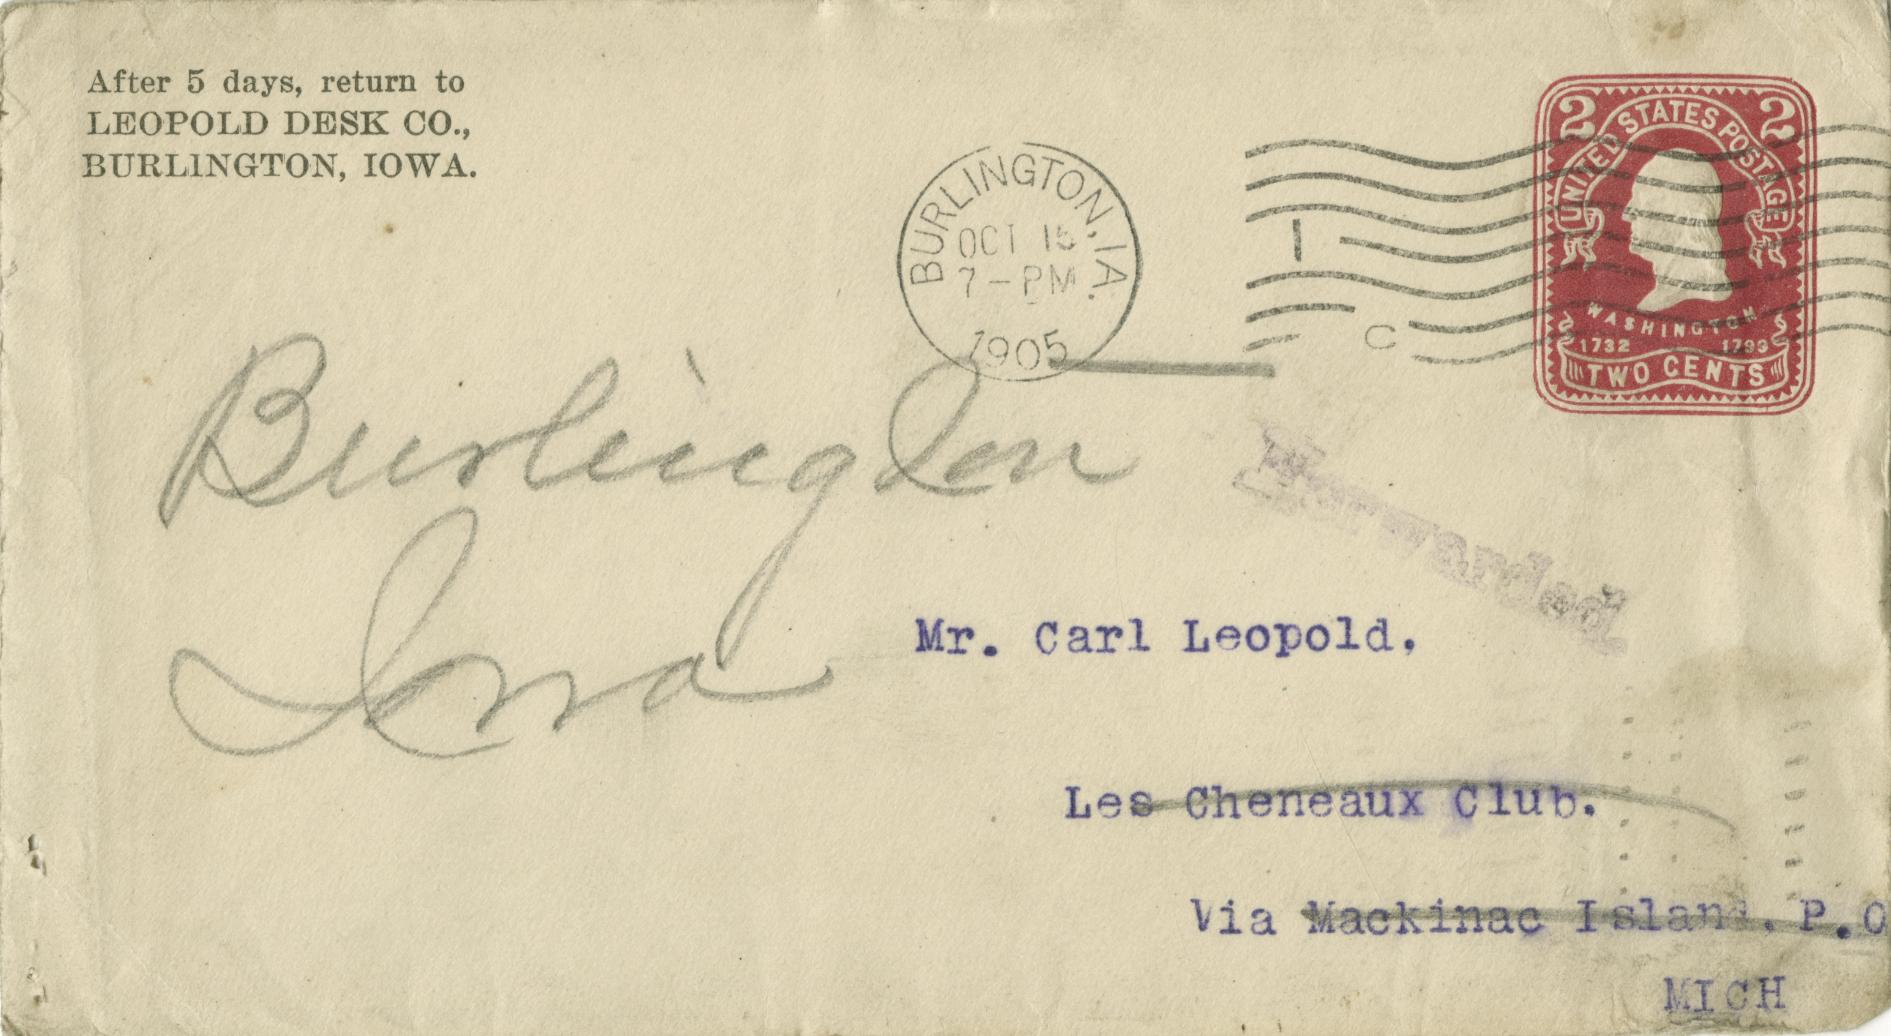 After 5 days, return to
LEOPOLD DESK CO.,
BURLINGTON, IOWA.
BURLINGTON, IA.
OCT 15
7-PM
1905
1
C
2 UNITED STATES POSTAGE 2
WASHINGTON
1732 1799
TWO CENTS
Burlington
Iowa
Forwarded
Mr. Carl Leopold.
Les Cheneaux Club.
Via Mackinac Island. P.O
MICH